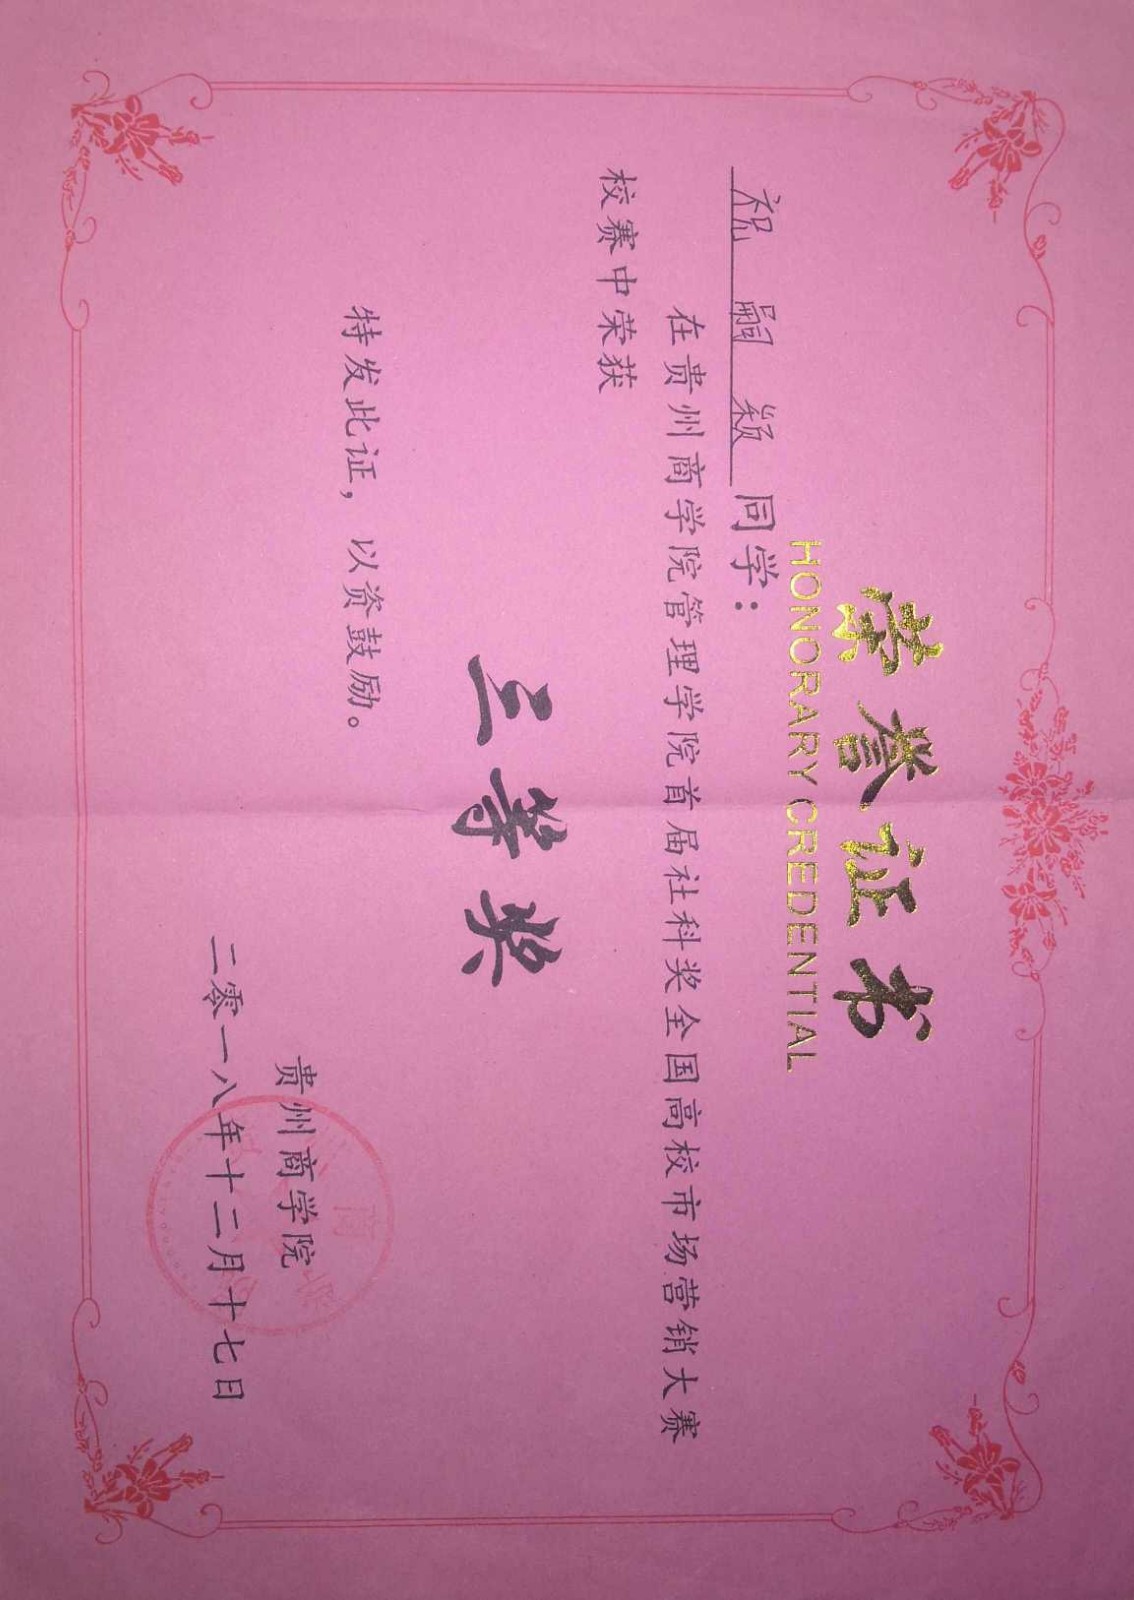 荣誉证书
HONORARY CREDENTIAL
祝嗣颖同学：
在贵州商学院管理学院首届社科奖全国高校市场营销大赛
校赛中荣获
三等奖
特发此证，以资鼓励。
贵州商学院
二零一八年十二月十七日